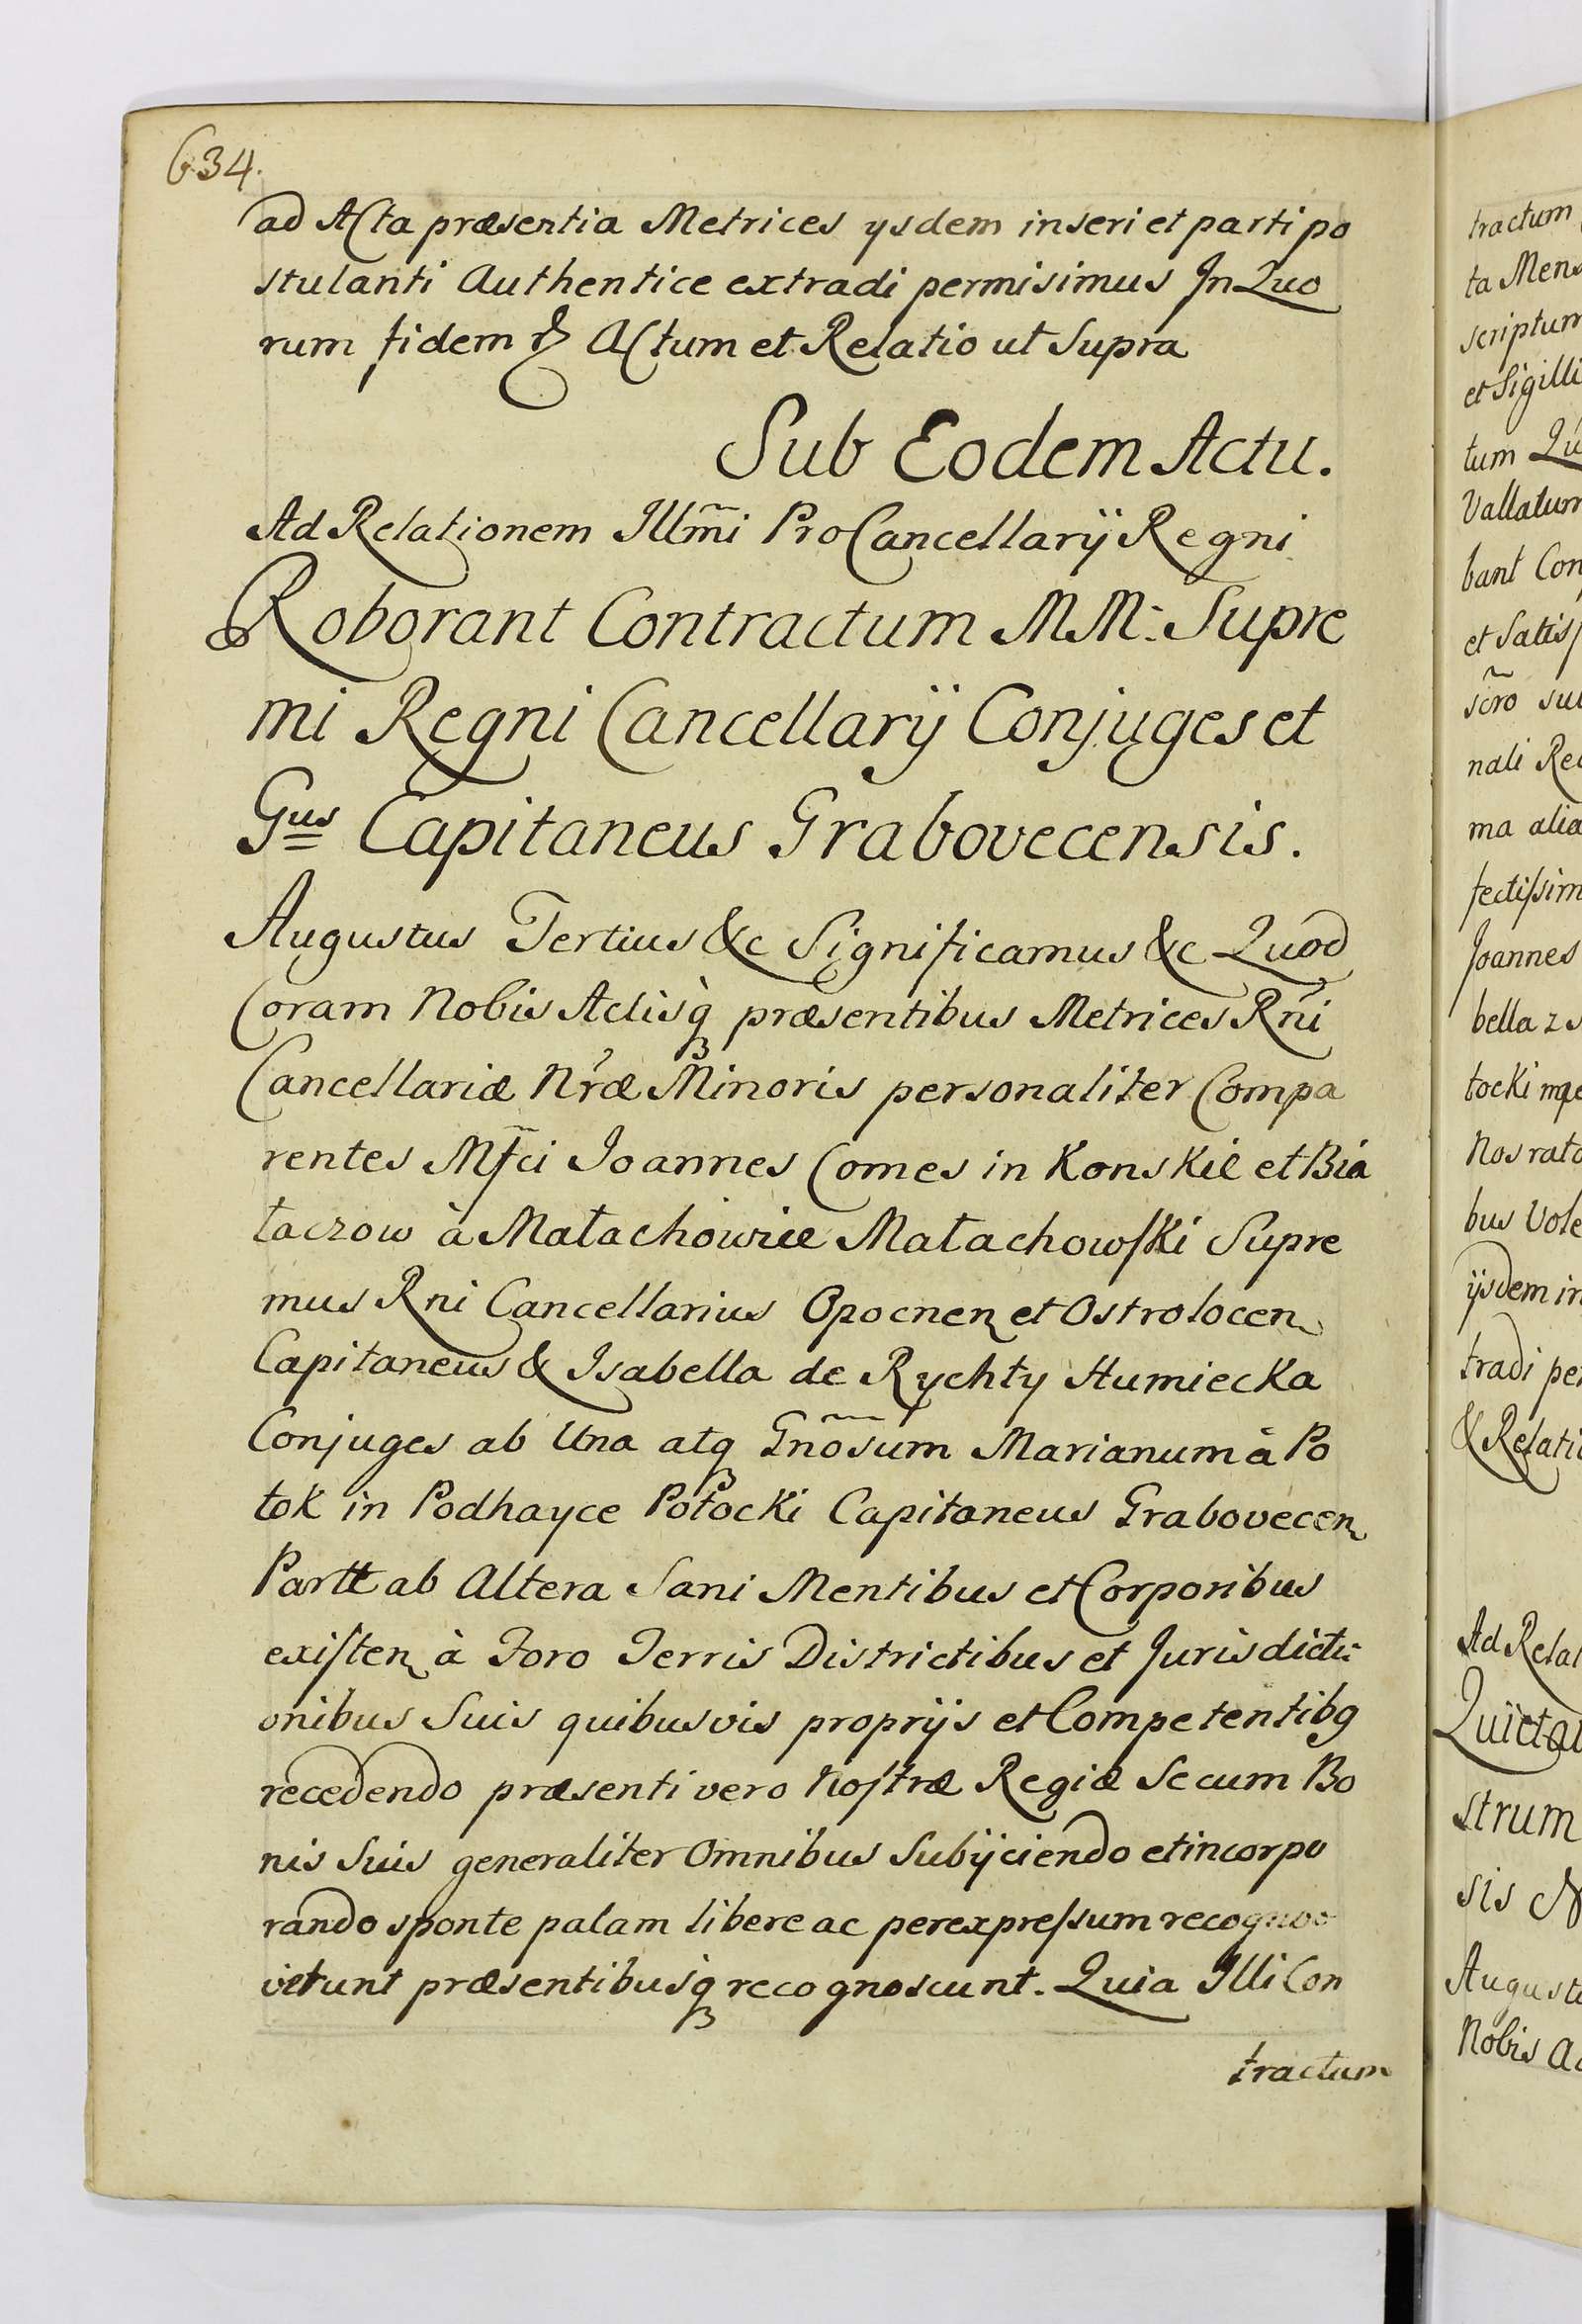 634.
ad Acta præsentia Metrices ysdem inseri et parti po
stulanti Authentice extradi permisimus In Quo
rum fidem & Actum et Relatio ut Supra
Sub Eodem Actu.
Ad Relationem Illm̃i ProCancellarÿ Regni
Roborant Contractum MM: Supre
mi Regni Cancellarÿ Conjuges et
Gus Capitaneus Grabovecensis.
Augustus Tertius &c Significamus &c Quod
Coram Nobis Actisq̀ præsentibus Metrices Rñi
Cancellariæ Nræ Minoris personaliter Compa
rentes Mf̃ci Joannes Comes in Konskie et Bia
łaczow à Małachowice Małachowski Supre
mus Rni Cancellarius Opocnen et Ostrolocen
Capitaneus & Isabella de Rychty Humiecka
Conjuges ab Una atq Gñosum Marianum à Po
tok in Podhayce Potocki Capitaneus Grabovecen
Partte ab Altera Sani Mentibus et Corporibus
existen à Foro Terris Districtibus et Jurisdicti-
onibus Suis quibusvis proprijs et Competentibg
recedendo præsenti vero Nostræ Regiæ Se cum Bo
nis Suis generaliter Omnibus Subÿciendo et incorpo
rando sponte palam libere ac per expressum recogno
verunt præsentibusq̀ recognoscunt. Quia Illi Con
tractum
tractum
ta Mens
scriptum
et Sigilli
tum Qu
Vallatum
bant Con
et Satisf
scr̃o su
nali Re
ma alia
fectissim
Joannes
bella z
tocki mqe
Nos rat
bus Vole
ÿsdem in
tradi per
& Relati
Ad Relat
Quietat
strum
sis
August
Nobis A